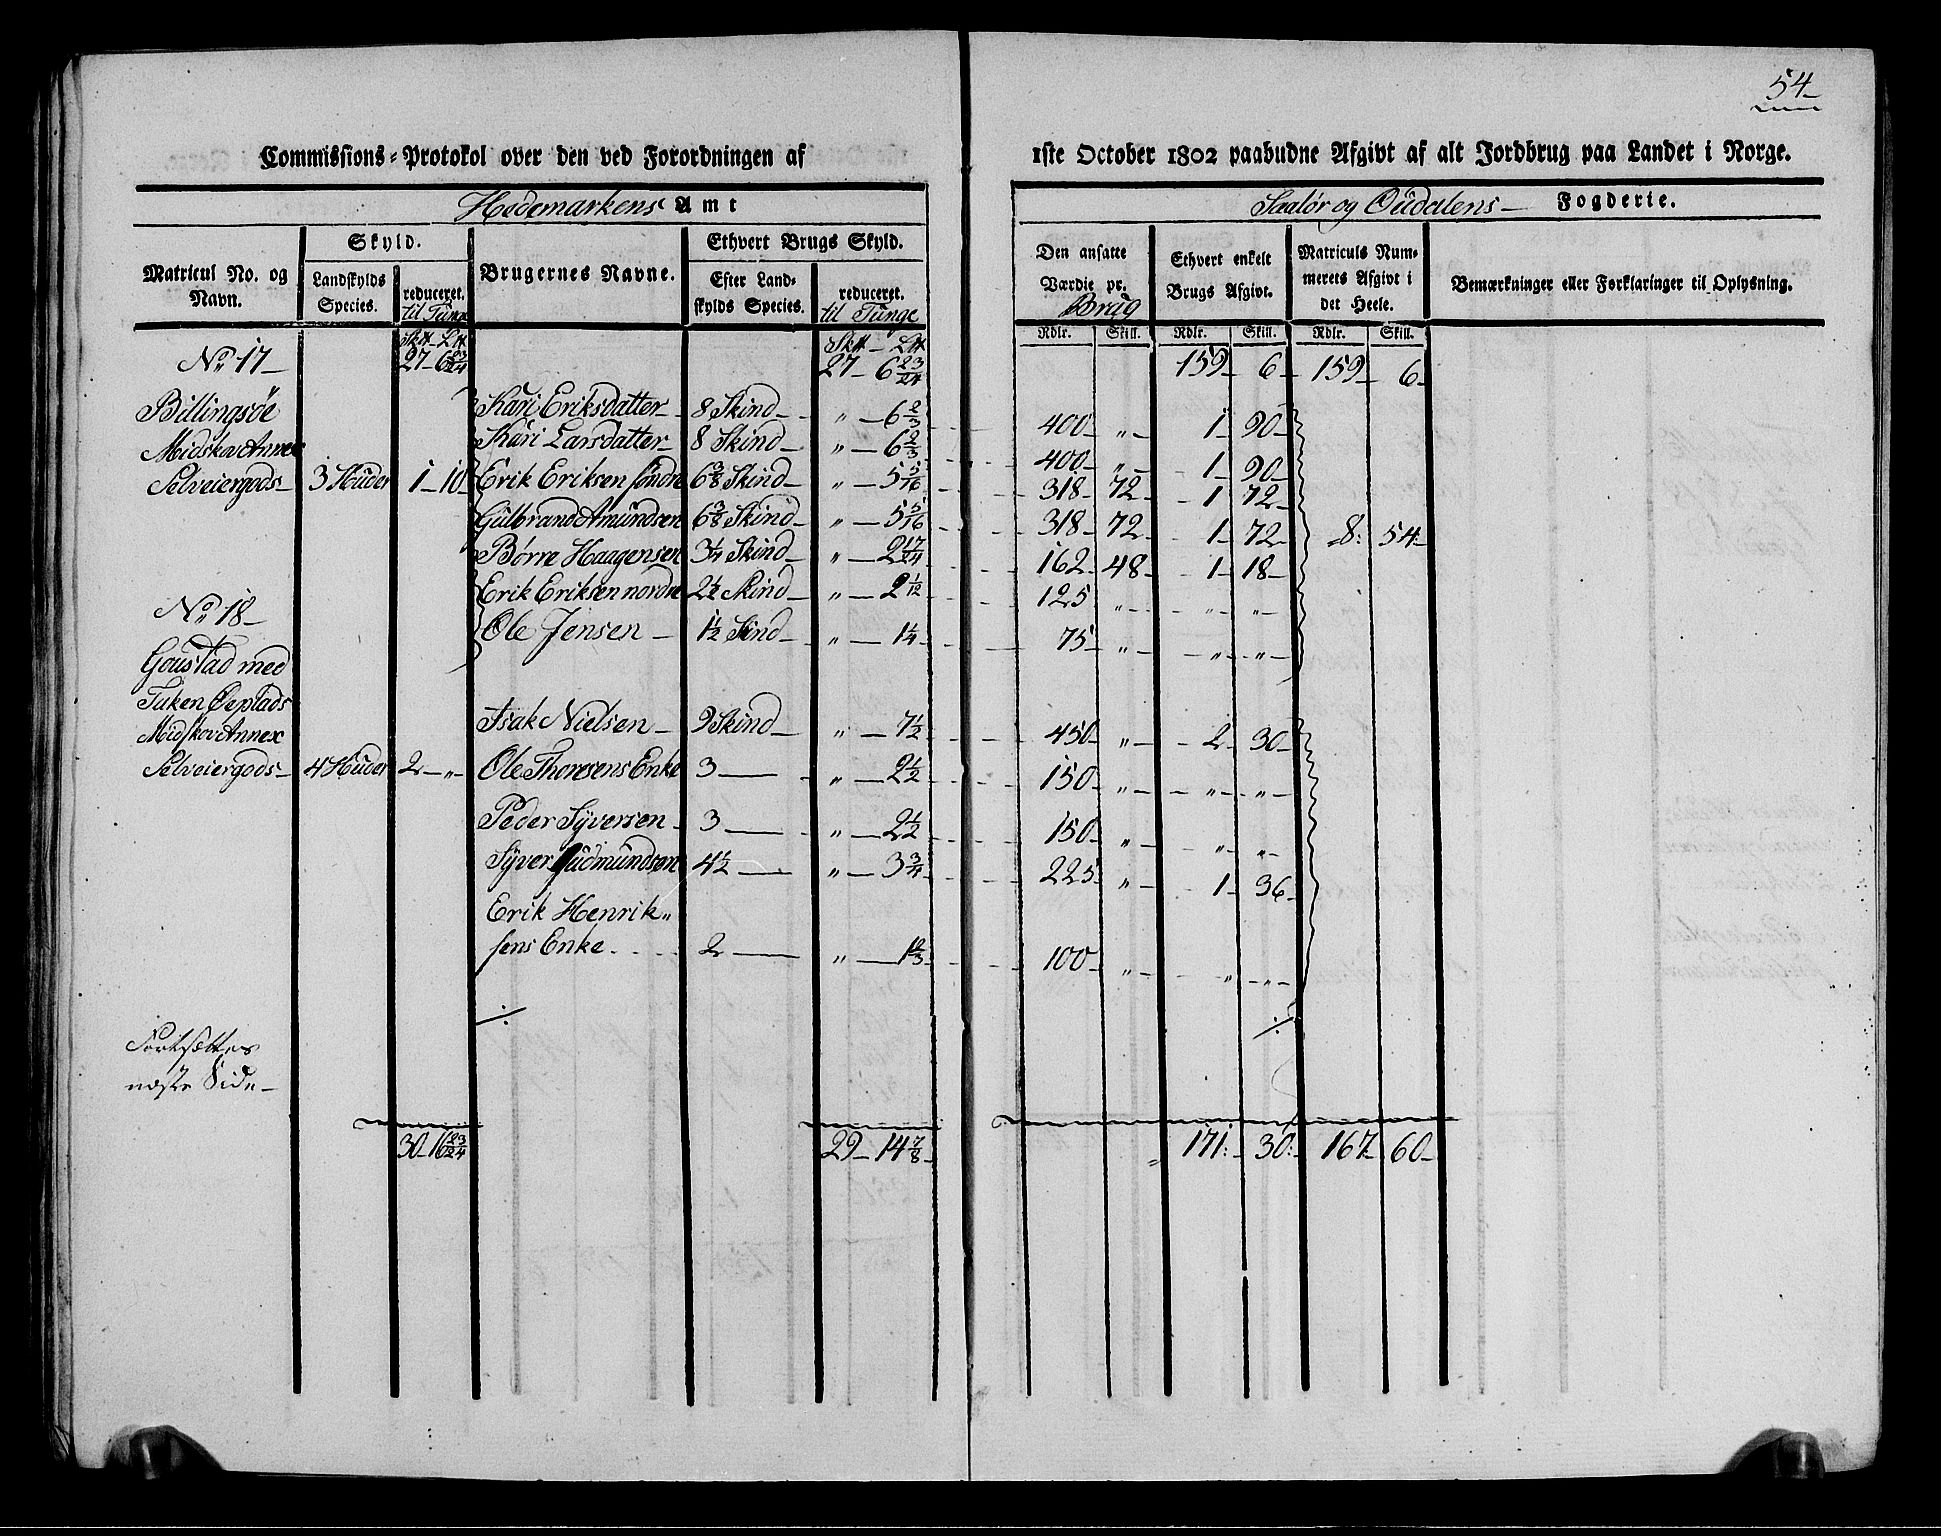 54
Commissions-Protokol over den ved Forordningen af 1ste October 1802 paabudne Afgivt af alt Jordbrug paa Landet i Norge.
Hedemarkens Amt
Saalør og Oudalens Fogderie.
Matricul No. og Navn.
Skyld.
Landskylds Species.
reduceret. til Tunge
Brugernes Navne.
Ethvert Brugs Skyld.
Efter Landskylds Species.
reduceret. til Tunge
Den ansatte Værdie pr. Brug
Ethvert enkelt Brugs Afgivt.
Matriculs Nummerets Afgivt i det Heele.
Bemærkninger eller Forklaringer til Oplysning.
Rdlr. Skill. Rdlr. Skill. Rdlr. Skill.
No 17 27 – 6 23/24 27 – 6 23/24 159 6 159 6
Billingsøe Kari Eriksdatter 8 Skind „ – 6 2/3 400 „ 1 90
Midskov Annex Kari Larsdatter 8 Skind „ – 6 2/3 400 „ 1 90
Selveiergods 3 Huder 1 – 10 Erik Eriksen søndre 6 3/8 Skind „ – 5 5/16 318 72 1 72
Gulbrand Amundsen 6 3/8 Skind „ – 5 5/16 318 72 1 72 8: 54
Børre Haagensen 3 1/4 Skind „ – 2 17/24 162 48 1 18
Erik Eriksen nordre 2 1/2 Skind „ – 2 1/12 125 „ „ „
No 18
Ole Jensen 1 1/2 Skind „ – 1 1/4 75 „ „ „
Goustad med
Tuken Øeplads
Midskov Annex Isak Nielsen 9 Skind „ – 7 1/2 450 „ 2 30
Selveiergods 4 Huder 2 – „ Ole Thoresens Enke 3 „ – 2 1/2 150 „ „ „
Peder Syversen 3 „ – 2 1/2 150 „ „ „
Syver Gudmundsen 4 1/2 „ – 3 3/4 225 „ 1 36
Erik Henrik„
sens Enke 2 „ – 1 2/3 100 „ „ „
Fortsættes
næste Side
30 – 16 23/24 29 – 14 7/8 171: 30: 167 60